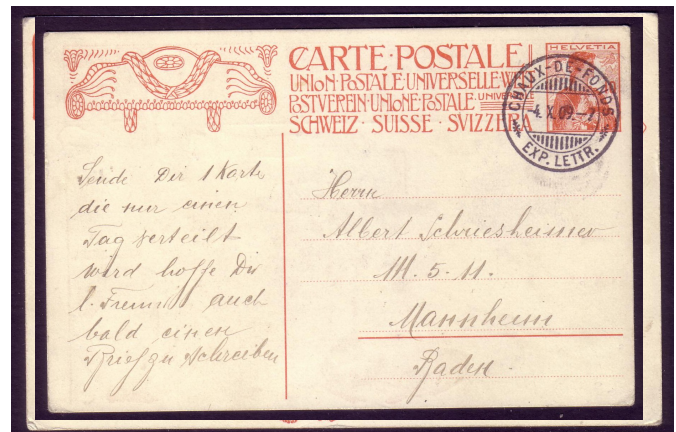 CARTE·POSTALE
UNION·POSTALE·UNIVERSELLE·W
POSTVEREIN·UNIONE·POSTALE·UNIVE
SCHWEIZ·SUISSE·SVIZZERA
HELVETIA
CHAUX-DE-FONDS
4.X.09.-7
EXP. LETTR.
Sende Dir 1 Karte
die nur einen
Tag verteilt
wird hoffe Dir
l. Freund auch
bald einen
Brief zu schreiben
Herrn
Albert Schriesheimer
M. 5. 11.
Mannheim
Baden.